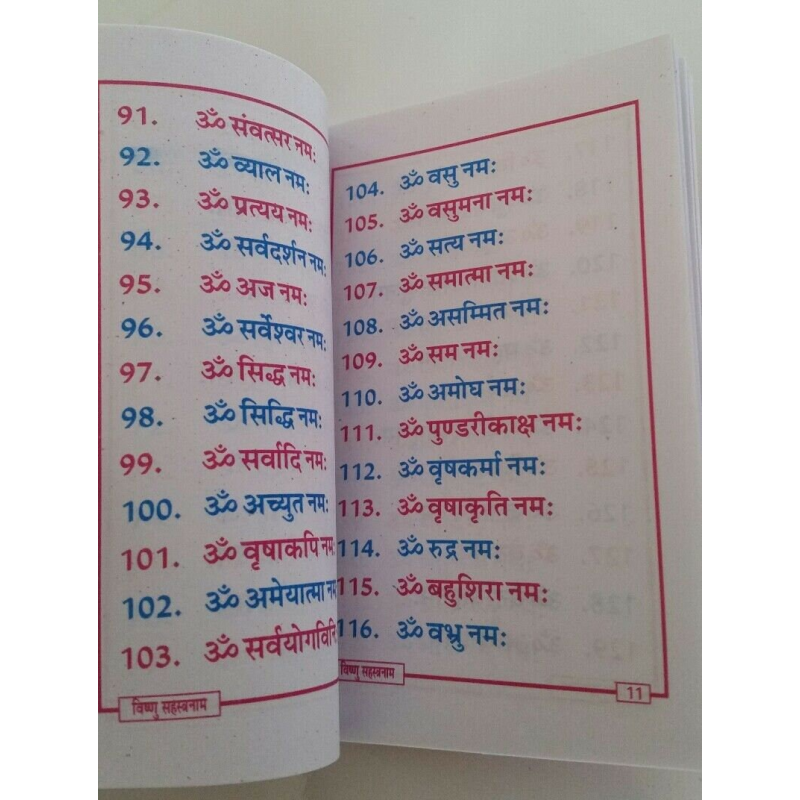 91. ॐ संवत्सर नमः
92. ॐ व्याल नमः
93. ॐ प्रत्यय नमः
94. ॐ सर्वदर्शन नमः
95. ॐ अज नमः
96. ॐ सर्वेश्वर नमः
97. ॐ सिद्ध नमः
98. ॐ सिद्धि नमः
99. ॐ सर्वादि नमः
100. ॐ अच्युत नमः
101. ॐ वृषाकपि नमः
102. ॐ अमेयात्मा नम
103. ॐ सर्वयोगविनि
विष्णु सहस्त्रनाम
104. ॐ वसु नमः
105. ॐ वसुमना नमः
106. ॐ सत्य नमः
107. ॐ समात्मा नमः
108. ॐ असम्मित नमः
109. ॐ सम नमः
110. ॐ अमोघ नमः
111. ॐ पुण्डरीकाक्ष नमः
112. ॐ वृषकर्मा नमः
113. ॐ वृषाकृति नमः
114. ॐ रुद्र नमः
115. ॐ बहुशिरा नमः
116. ॐ वभ्रु नमः
विष्णु सहस्त्रनाम
11